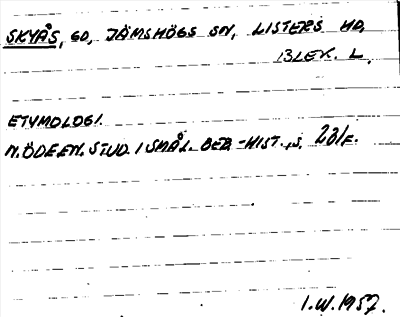 SKYÅS, GD, JÄMSHÖGS SN, LISTERS HD,
BLEK. L.
ETYMOLOGI.
N. ÖDEEN. STUD. I SMÅL. BEB.-HIST., S. 231 F.
I.W. 1957.